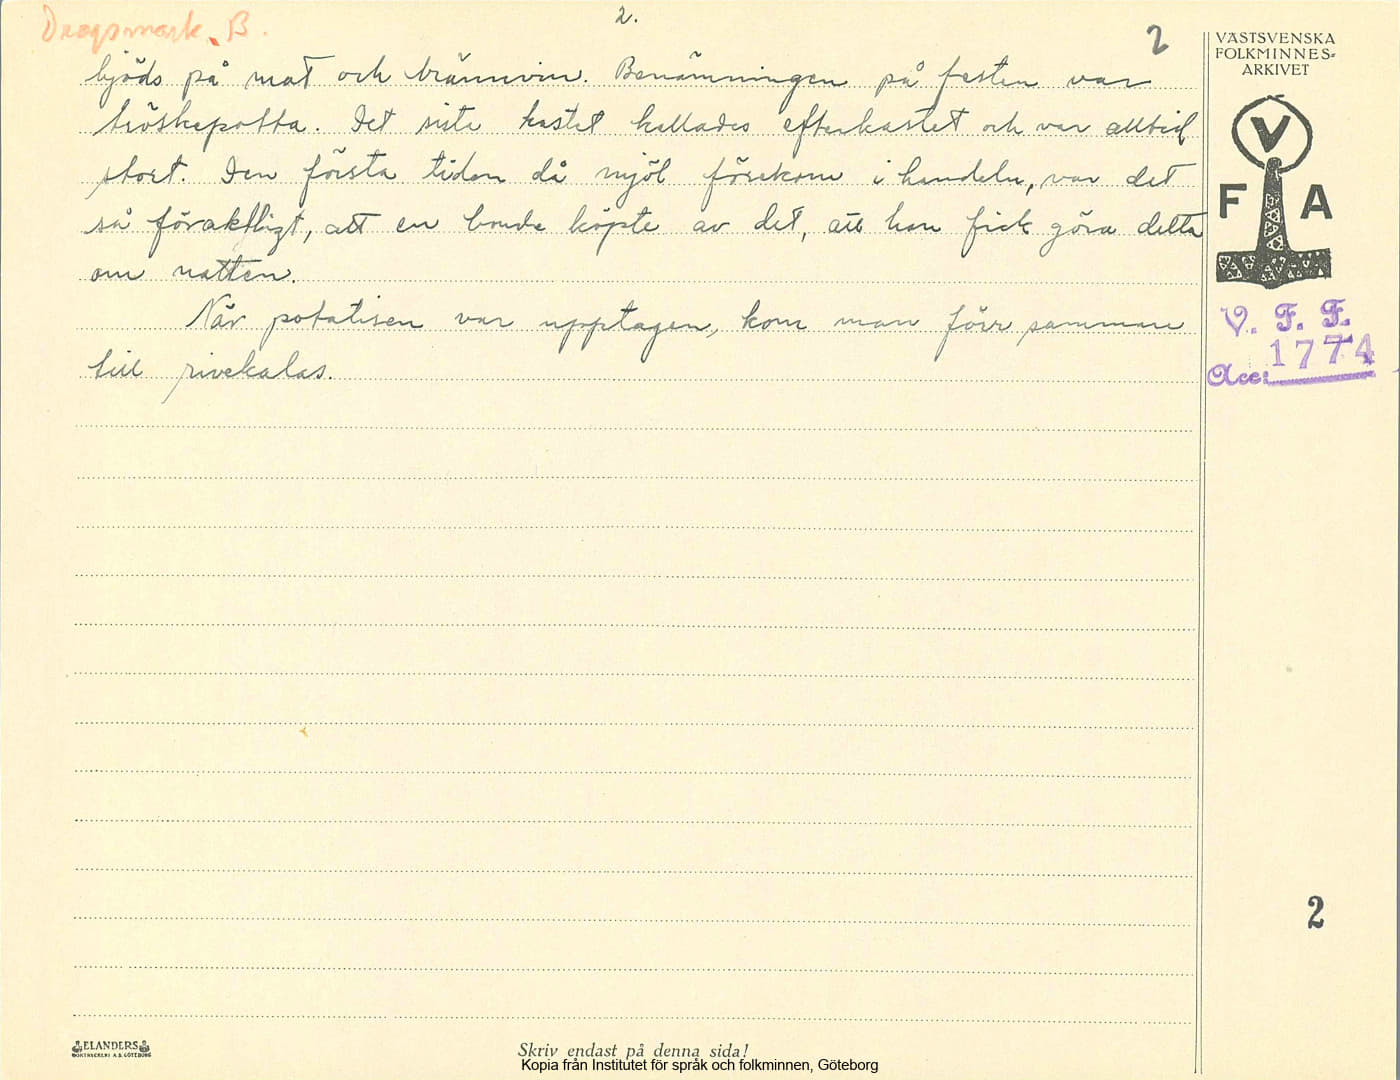 Dragsmark. B.
2.
2
bjöds på mat och brännvin. Benämningen på festen var
tröskepotta. Det siste kastet kallades efterkastet och var alltid
stort. Den första tiden då mjöl förekom i handeln, var det
så föraktligt, att en bonde köpte av det, att han fick göra detta
om natten.
När potatisen var upptagen, kom man förr samman
till rivekalas.
VÄSTSVENSKA
FOLKMINNES=
ARKIVET
V
F A
V. F. F.
Acc: 1774
2
ELANDERS
BOKTRYCKERI A.B. GÖTEBORG
Skriv endast på denna sida!
Kopia från Institutet för språk och folkminnen, Göteborg